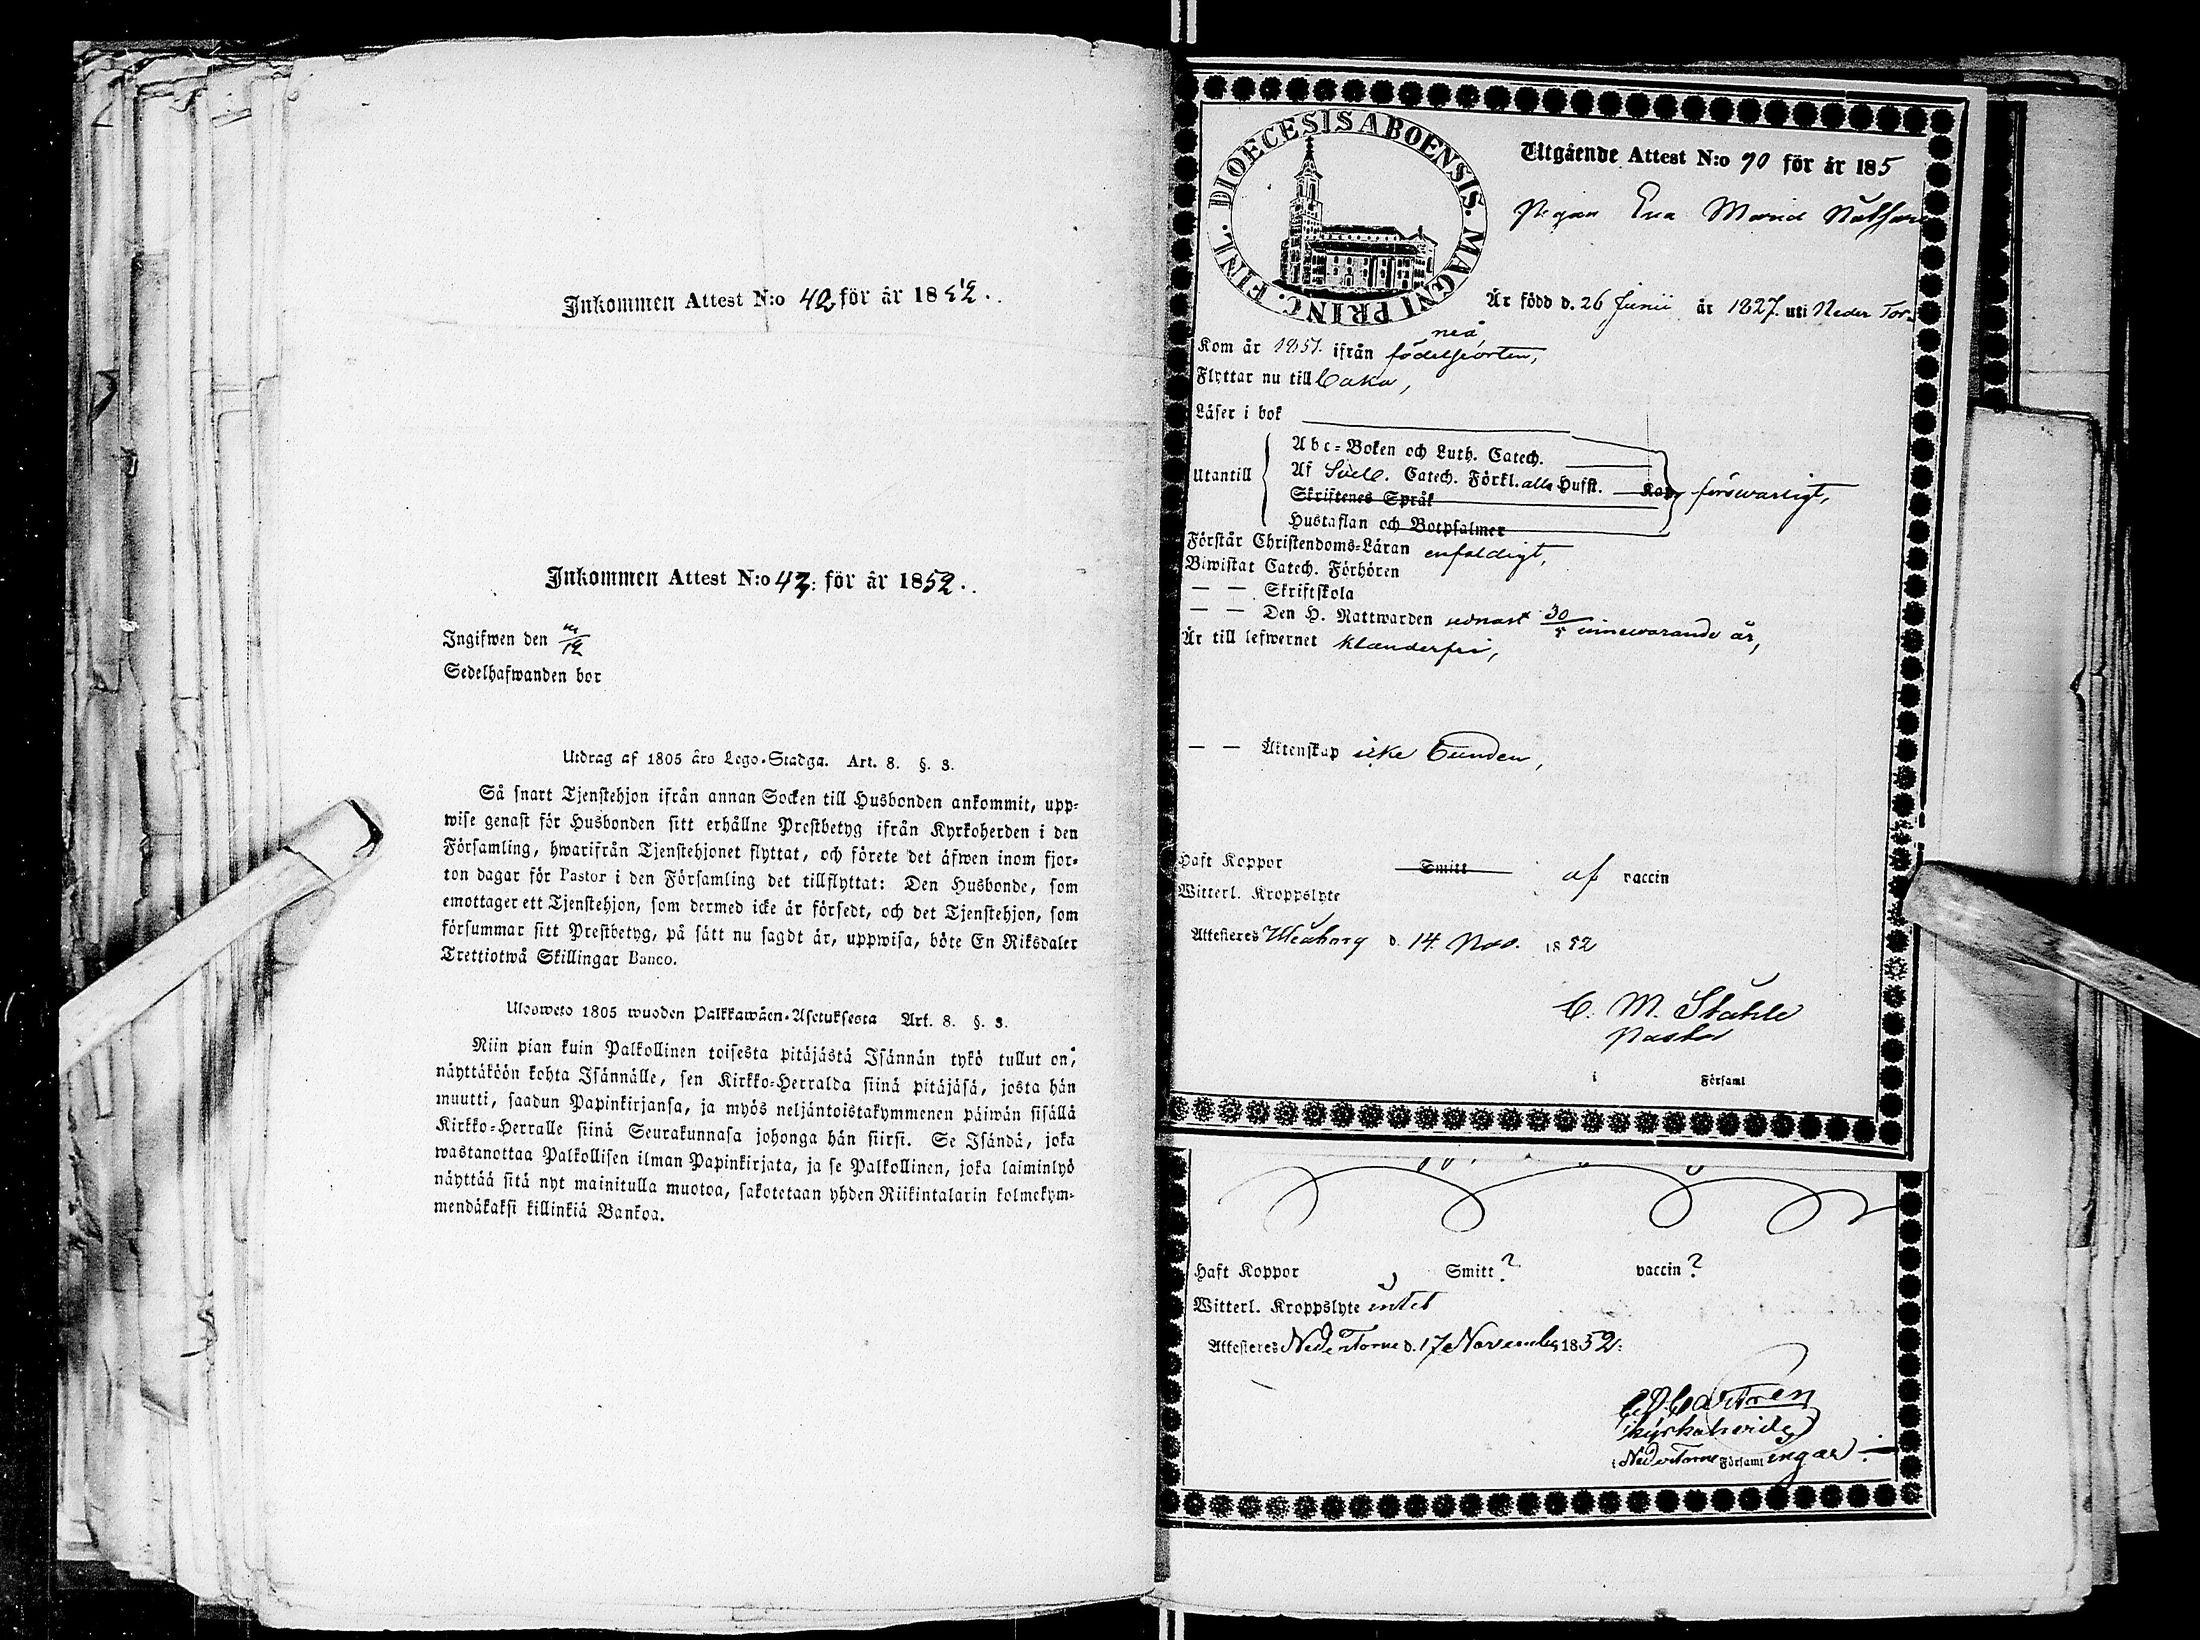 Inkommen Attest N:o 42 för år 1852.
Inkommen Attest N:o 43: för år 1852.
Ingifwen den
Sedelhafwanden bor
Utdrag af 1805 års Lego-Stadga. Art. 8. §. 3.
Så snart Tjenstehjon ifrån annan Socken till Husbonden ankommit, upp-
wise genast för Husbonden sitt erhållne Prestbetyg ifrån Kyrkoherden i den
Församling, hwarifrån Tjenstehjonet flyttat, och förete det äfwen inom fjor-
ton dagar för Pastor i den Församling det tillflyttat: Den Husbonde, som
emottager ett Tjenstehjon, som dermed icke är försedt, och det Tjenstehjon, som
försummar sitt Prestbetyg, på sätt nu sagdt är, uppwisa, böte En Riksdaler
Trettiotwå Skillingar Banco.
Ulosweto 1805 wuoden Palkkawäen-Asetuksesta Art. 8. §. 3.
Niin pian kuin Palkollinen toisesta pitäjästä Isännän tykö tullut on,
näyttäköön kohta Isännälle, sen Kirkko-Herralda siinä pitäjäsä, josta hän
muutti, saadun Papinkirjansa, ja myös neljäntoistakymmenen päiwän sisällä
Kirkko-Herralle siinä Seurakunnasa johonga hän siirsi. Se Isändä, joka
wastanottaa Palkollisen ilman Papinkirjata, ja se Palkollinen, joka laiminlyö
näyttää sitä nyt mainitulla muotoa, sakotetaan yhden Riikintalarin kolmekym-
mendäkaksi killinkiä Bankoa.
DIOECESIS ABOENSIS. MAGNI PRINC. FINL.
Utgående Attest N:o 90 för år 185
Pigan Eva Maria
Är född d. 26 Junii år 1827. uti Neder Tor-
neå,
Kom år 1851. ifrån födelseorten,
Flyttar nu till
Läser i bok
Utantill
Abc-Boken och Luth. Catech.
Af Sveb. Catech. Förkl. alla Hufst. Kap. försvarligt,
Skriftenes Språk
Hustaflan och Botpsalmer
Förstår Christendoms-Läran enfaldigt,
Biwistat Catech. Förhören
— — Skriftskola
— — Den H. Nattwarden senast 30/5 innewarande år,
Är till lefwernet klanderfri,
— — Äktenskap icke bunden,
Haft Koppor Smitt af vaccin
Witterl. Kroppslyte
Attesteres Uleåborg d. 14. Nov. 1852
C. M. Ståhle
Pastor
i Församl
Haft Koppor Smitt? vaccin?
Witterl. Kroppslyte intet
Attesteres NederTorne d. 17 November 1852:
Castren
kyrkoherde
i NederTorne Församl ingar